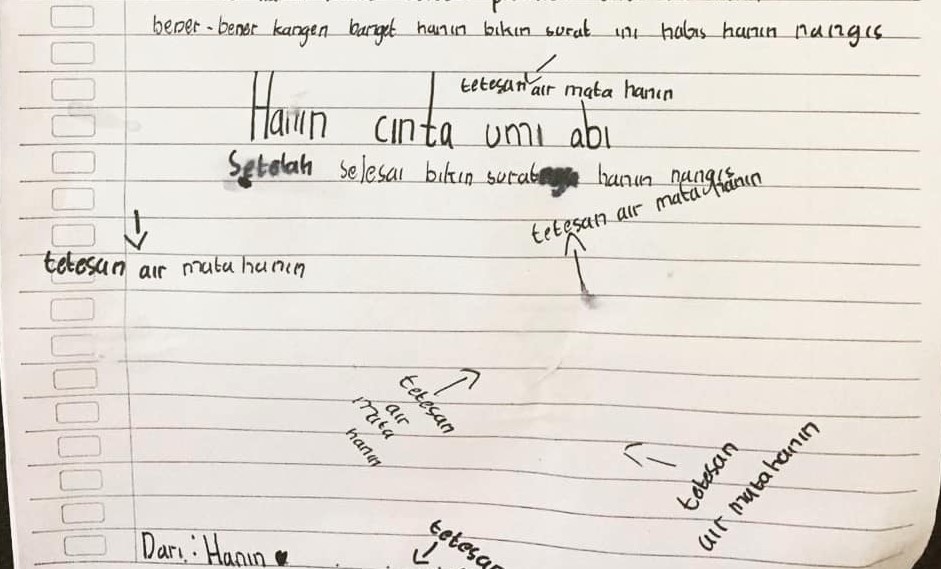 bener-bener kangen banget hanin bikin surat ini habis hanin nangis
tetesan air mata hanin
Hanin cinta umi abi
Setelah selesai bikin suratnya hanin nangis
tetesan air mata hanin
tetesan air mata hanin
tetesan
air
mata
hanin
tetesan
air mata hanin
Dari : Hanin
tetesan